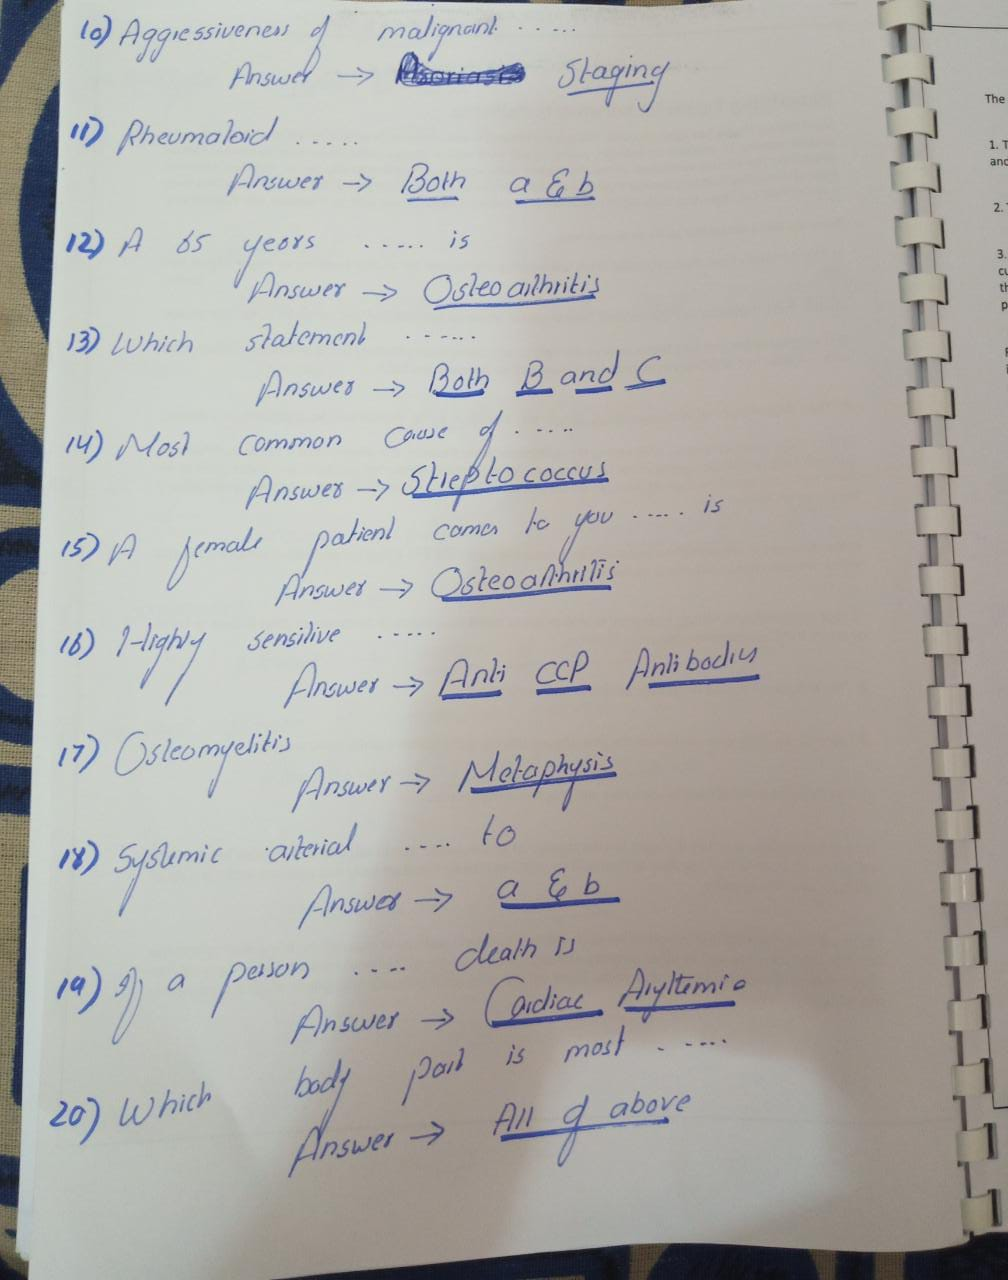 10) Aggressiveness of malignant .....
Answer → Staging
11) Rheumatoid .....
Answer → Both a & b
12) A 65 years ..... is
Answer → Osteoarthritis
13) Which statement ......
Answer → Both B and C
14) Most common cause of .....
Answer → Streptococcus
15) A female patient comes to you ..... is
Answer → Osteoarthritis
16) Highly sensitive .....
Answer → Anti CCP Antibodies
17) Osteomyelitis
Answer → Metaphysis
18) Systemic arterial .... to
Answer → a & b
19) If a person .... death is
Answer → Cardiac Arytemia
20) Which body part is most .....
Answer → All of above
The
1. T
and
2.
3.
cu
th
p